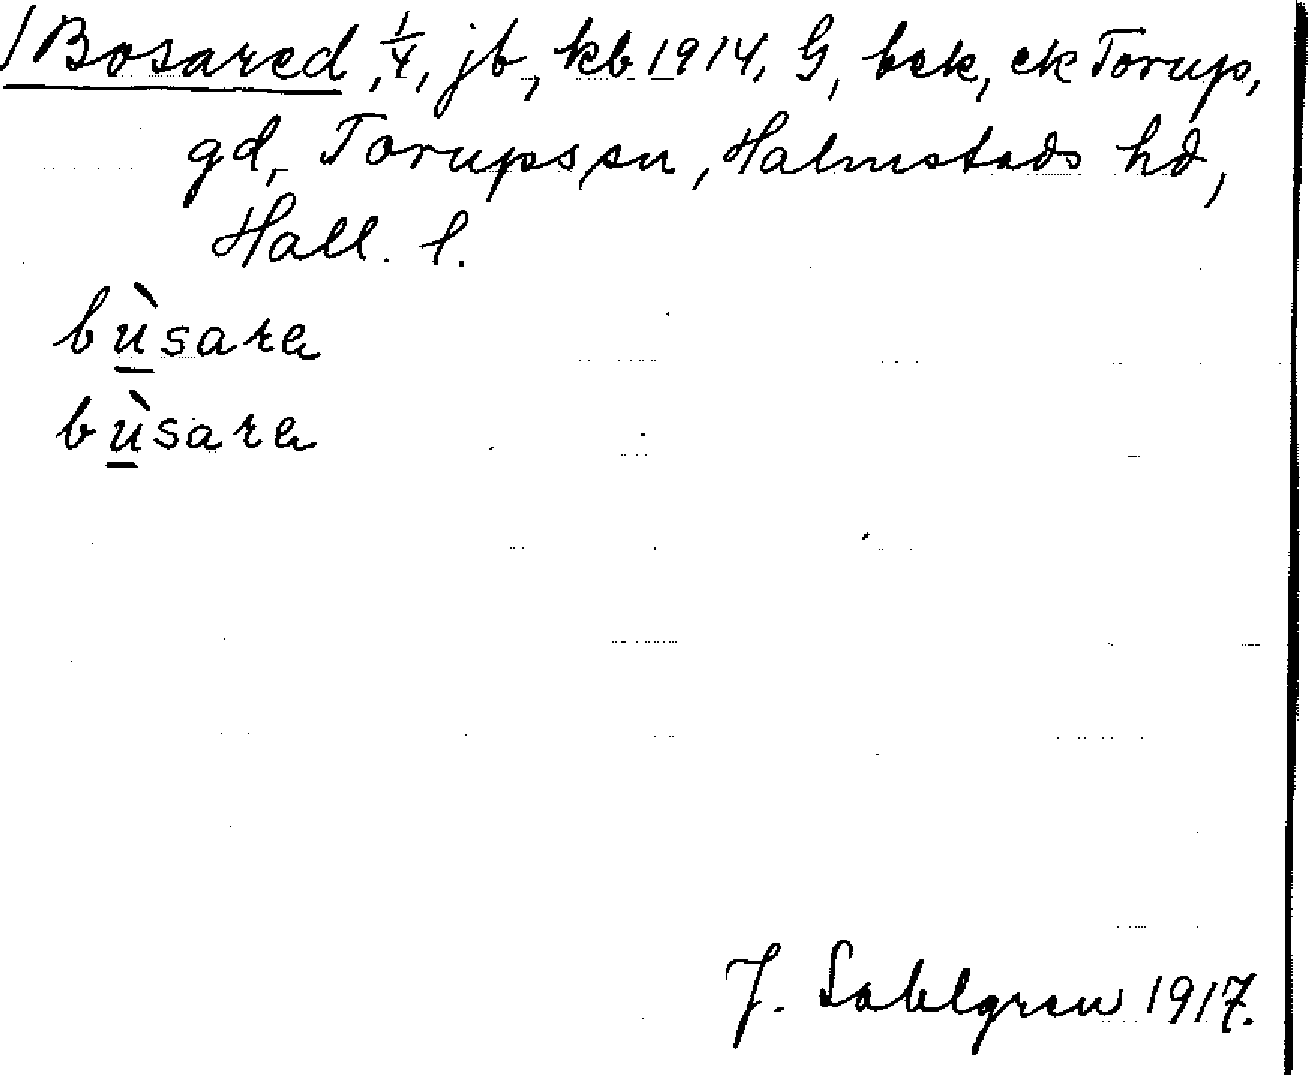 Bosared, 1/4, jb, kb 1914, G, bsk, ek Torup,
gd, Torups sn, Halmstads hd,
Hall. l.
bùsarα
bùsarα
J. Sahlgren 1917.